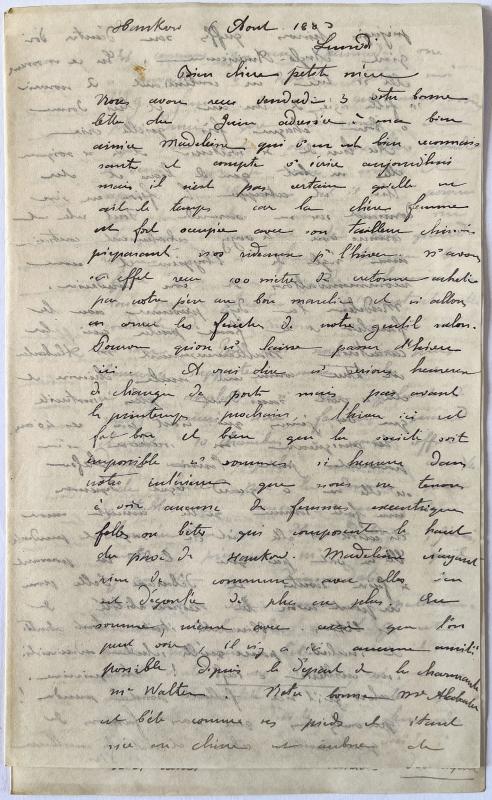 Hankow 6 Aout 1883
Lundi
Bien chère petite mère
Nous avons reçu vendredi 3 votre bonne
lettre du Juin adressée à ma bien
aimée Madeleine qui s'en est bien reconnais
sante et compte v/s écrire aujourd'hui
mais il n'est pas certain qu'elle en
ait le temps car la chère femme
est fort occupée avec son tailleur chinois
préparant nos rideaux pr l'hiver. N/s avons
en effet reçu 100 mètres de cretonne achetée
par votre père au bon marché et n/s allons
en orner les fenêtres de notre gentil salon.
Pourvu qu'on n/s laisse passer l'hiver
ici. A vrai dire n/s serions heureux
de changer de porte mais pas avant
le printemps prochain, l'hiver ici est
fort bon et bien que la société soit
impossible n/s sommes si heureux dans
notre intérieur que nous ne tenons
à voir aucune de femmes excentriques
folles ou bêtes qui composent le haut
du pavé de Hankow. Madeleine n'ayant
rien de commun avec elles s'en
est dégoûtée de plus en plus. En
somme, même avec ceux que l'on
peut voir, il n'y a ici aucune amitié
possible depuis le départ de la charmante
Me Walter. Notre bonne Me
est bête comme ses pieds et étant
née en chine et de